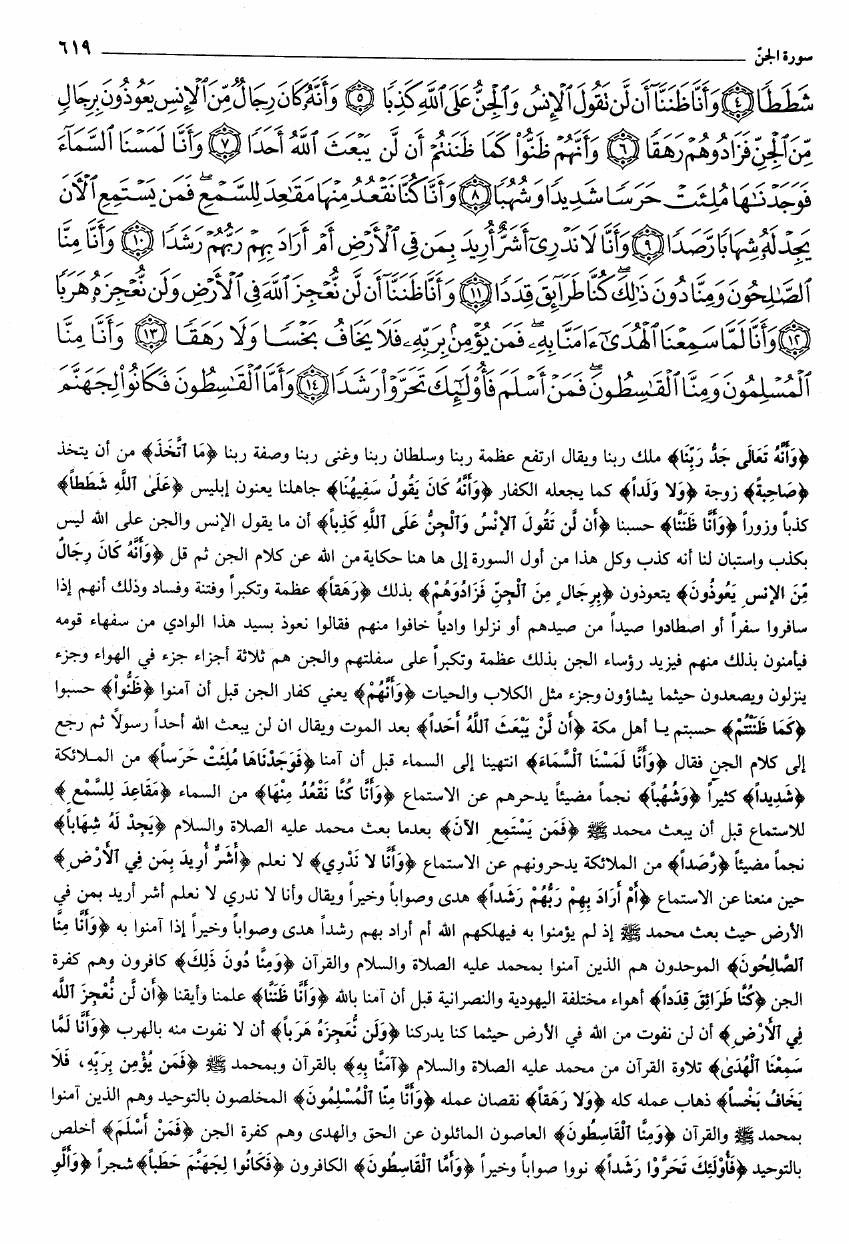 سورة الجنّ ٦١٩
شَطَطًا ﴿٤﴾ وَأَنَّا ظَنَنَّآ أَن لَّن نَقُولَ ٱلْإِنسُ وَٱلْجِنُّ عَلَى ٱللَّهِ كَذِبًا ﴿٥﴾ وَأَنَّهُۥ كَانَ رِجَالٌ مِّنَ ٱلْإِنسِ يَعُوذُونَ بِرِجَالٍ
مِّنَ ٱلْجِنِّ فَزَادُوهُمْ رَهَقًا ﴿٦﴾ وَأَنَّهُمْ ظَنُّوا۟ كَمَا ظَنَنتُمْ أَن لَّن يَبْعَثَ ٱللَّهُ أَحَدًا ﴿٧﴾ وَأَنَّا لَمَسْنَا ٱلسَّمَآءَ
فَوَجَدْنَٰهَا مُلِئَتْ حَرَسًا شَدِيدًا وَشُهُبًا ﴿٨﴾ وَأَنَّا كُنَّا نَقْعُدُ مِنْهَا مَقَٰعِدَ لِلسَّمْعِ ۖ فَمَن يَسْتَمِعِ ٱلْآنَ
يَجِدْ لَهُۥ شِهَابًا رَّصَدًا ﴿٩﴾ وَأَنَّا لَا نَدْرِىٓ أَشَرٌّ أُرِيدَ بِمَن فِى ٱلْأَرْضِ أَمْ أَرَادَ بِهِمْ رَبُّهُمْ رَشَدًا ﴿١٠﴾ وَأَنَّا مِنَّا
ٱلصَّٰلِحُونَ وَمِنَّا دُونَ ذَٰلِكَ ۖ كُنَّا طَرَآئِقَ قِدَدًا ﴿١١﴾ وَأَنَّا ظَنَنَّآ أَن لَّن نُّعْجِزَ ٱللَّهَ فِى ٱلْأَرْضِ وَلَن نُّعْجِزَهُۥ هَرَبًا
﴿١٢﴾ وَأَنَّا لَمَّا سَمِعْنَا ٱلْهُدَىٰٓ ءَامَنَّا بِهِۦ ۖ فَمَن يُؤْمِنۢ بِرَبِّهِۦ فَلَا يَخَافُ بَخْسًا وَلَا رَهَقًا ﴿١٣﴾ وَأَنَّا مِنَّا
ٱلْمُسْلِمُونَ وَمِنَّا ٱلْقَٰسِطُونَ ۖ فَمَنْ أَسْلَمَ فَأُو۟لَٰٓئِكَ تَحَرَّوْا۟ رَشَدًا ﴿١٤﴾ وَأَمَّا ٱلْقَٰسِطُونَ فَكَانُوا۟ لِجَهَنَّمَ
﴿وَأَنَّهُ تَعَالَى جَدُّ رَبِّنَا﴾ ملك ربنا ويقال ارتفع عظمة ربنا وسلطان ربنا وغنى ربنا وصفة ربنا ﴿مَا ٱتَّخَذَ﴾ من أن يتخذ
﴿صَاحِبةً﴾ زوجة ﴿وَلا وَلَداً﴾ كما يجعله الكفار ﴿وَأَنَّهُ كَانَ يَقُولُ سَفِيهُنَا﴾ جاهلنا يعنون إبليس ﴿عَلَىٰ اللَّهِ شَطَطاً﴾
كذباً وزوراً ﴿وَأَنَّا ظَنَنَّا﴾ حسبنا ﴿أَن لَّن تَقُولَ ٱلإنْسُ وَٱلْجِنُّ عَلَى اللَّهِ كَذِباً﴾ أن ما يقول الإنس والجن على الله ليس
بكذب واستبان لنا أنه كذب وكل هذا من أول السورة إلى ها هنا حكاية من الله عن كلام الجن ثم قل ﴿وَأَنَّهُ كَانَ رِجَالٌ
مِّنَ الإنس يَعُوذُونَ﴾ يتعوذون ﴿بِرِجَالٍ مِنَ ٱلْجِنِّ فَزَادُوَهُمْ﴾ بذلك ﴿رَهَقاً﴾ عظمة وتكبراً وفتنة وفساد وذلك أنهم إذا
سافروا سفراً أو اصطادوا صيداً من صيدهم أو نزلوا وادياً خافوا منهم فقالوا نعوذ بسيد هذا الوادي من سفهاء قومه
فيأمنون بذلك منهم فيزيد رؤساء الجن بذلك عظمة وتكبراً على سفلتهم والجن هم ثلاثة أجزاء جزء في الهواء وجزء
ينزلون ويصعدون حيثما يشاؤون وجزء مثل الكلاب والحيات ﴿وَأَنَّهُمْ﴾ يعني كفار الجن قبل أن آمنوا ﴿ظَنُّواْ﴾ حسبوا
﴿كَمَا ظَنَنْتُمْ﴾ حسبتم يا أهل مكة ﴿أَن لَّنْ يَبْعَثَ ٱللَّهُ أَحَداً﴾ بعد الموت ويقال ان لن يبعث الله أحداً رسولاً ثم رجع
إلى كلام الجن فقال ﴿وَأَنَّا لَمَسْنَا ٱلسَّمَاءَ﴾ انتهينا إلى السماء قبل أن آمنا ﴿فَوَجَدْنَاهَا مُلِئَتْ حَرَساً﴾ من المـلائكة
﴿شَدِيداً﴾ كثيراً ﴿وَشُهُباً﴾ نجماً مضيئاً يدحرهم عن الاستماع ﴿وَأَنَّا كُنَّا نَقْعُدُ مِنْهَا﴾ من السماء ﴿مَقَاعِدَ لِلسَّمْعِ﴾
للاستماع قبل أن يبعث محمد ﷺ ﴿فَمَن يَسْتَمِعِ الآنَ﴾ بعدما بعث محمد عليه الصلاة والسلام ﴿يَجِدْ لَهُ شِهَاباً﴾
نجماً مضيئاً ﴿رَّصَداً﴾ من الملائكة يدحرونهم عن الاستماع ﴿وَأَنَّا لا نَدْرِي﴾ لا نعلم ﴿أَشَرٌّ أُرِيدَ بِمَن فِي ٱلأَرْضِ﴾
حين منعنا عن الاستماع ﴿أَمْ أَرَادَ بِهِمْ رَبُّهُمْ رَشَداً﴾ هدى وصواباً وخيراً ويقال وأنا لا ندري لا نعلم أشر أريد بمن في
الأرض حيث بعث محمد ﷺ إذ لم يؤمنوا به فيهلكهم الله أم أراد بهم رشداً هدى وصواباً وخيراً إذا آمنوا به ﴿وَأَنَّا مِنَّا
ٱلصَّالِحُونَ﴾ الموحدون هم الذين آمنوا بمحمد عليه الصلاة والسلام والقرآن ﴿وَمِنَّا دُونَ ذَلِكَ﴾ كافرون وهم كفرة
الجن ﴿كُنَّا طَرَائِقَ قِدَداً﴾ أهواء مختلفة اليهودية والنصرانية قبل أن آمنا بالله ﴿وَأَنَّا ظَنَنَّا﴾ علمنا وأيقنا ﴿أَن لَّن نُّعْجِزَ ٱللَّه
فِي ٱلأَرْضِ﴾ أن لن نفوت من الله في الأرض حيثما كنا يدركنا ﴿وَلَن نُّعجِزَهُ هَرَباً﴾ أن لا نفوت منه بالهرب ﴿وَأَنَّا لَمَّا
سَمِعْنَا ٱلْهُدَىٰ﴾ تلاوة القرآن من محمد عليه الصلاة والسلام ﴿آمَنَّا بِهِ﴾ بالقرآن وبمحمد ﷺ ﴿فَمَن يُؤْمِن بِرَبِّهِ، فَلَا
يَخَافُ بَخْساً﴾ ذهاب عمله كله ﴿وَلا رَهَقاً﴾ نقصان عمله ﴿وَأَنَّا مِنَّا ٱلْمُسْلِمُونَ﴾ المخلصون بالتوحيد وهم الذين آمنوا
بمحمد ﷺ والقرآن ﴿وَمِنَّا ٱلْقَاسِطُونَ﴾ العاصون المائلون عن الحق والهدى وهم كفرة الجن ﴿فَمَنْ أَسْلَمَ﴾ أخلص
بالتوحيد ﴿فَأُوْلَئِكَ تَحَرَّوْا رَشَداً﴾ نووا صواباً وخيراً ﴿وَأَمَّا ٱلْقَاسِطُونَ﴾ الكافرون ﴿فَكَانُوا لِجَهَنَّمَ حَطَباً﴾ شجراً ﴿وَأَلَّوِ